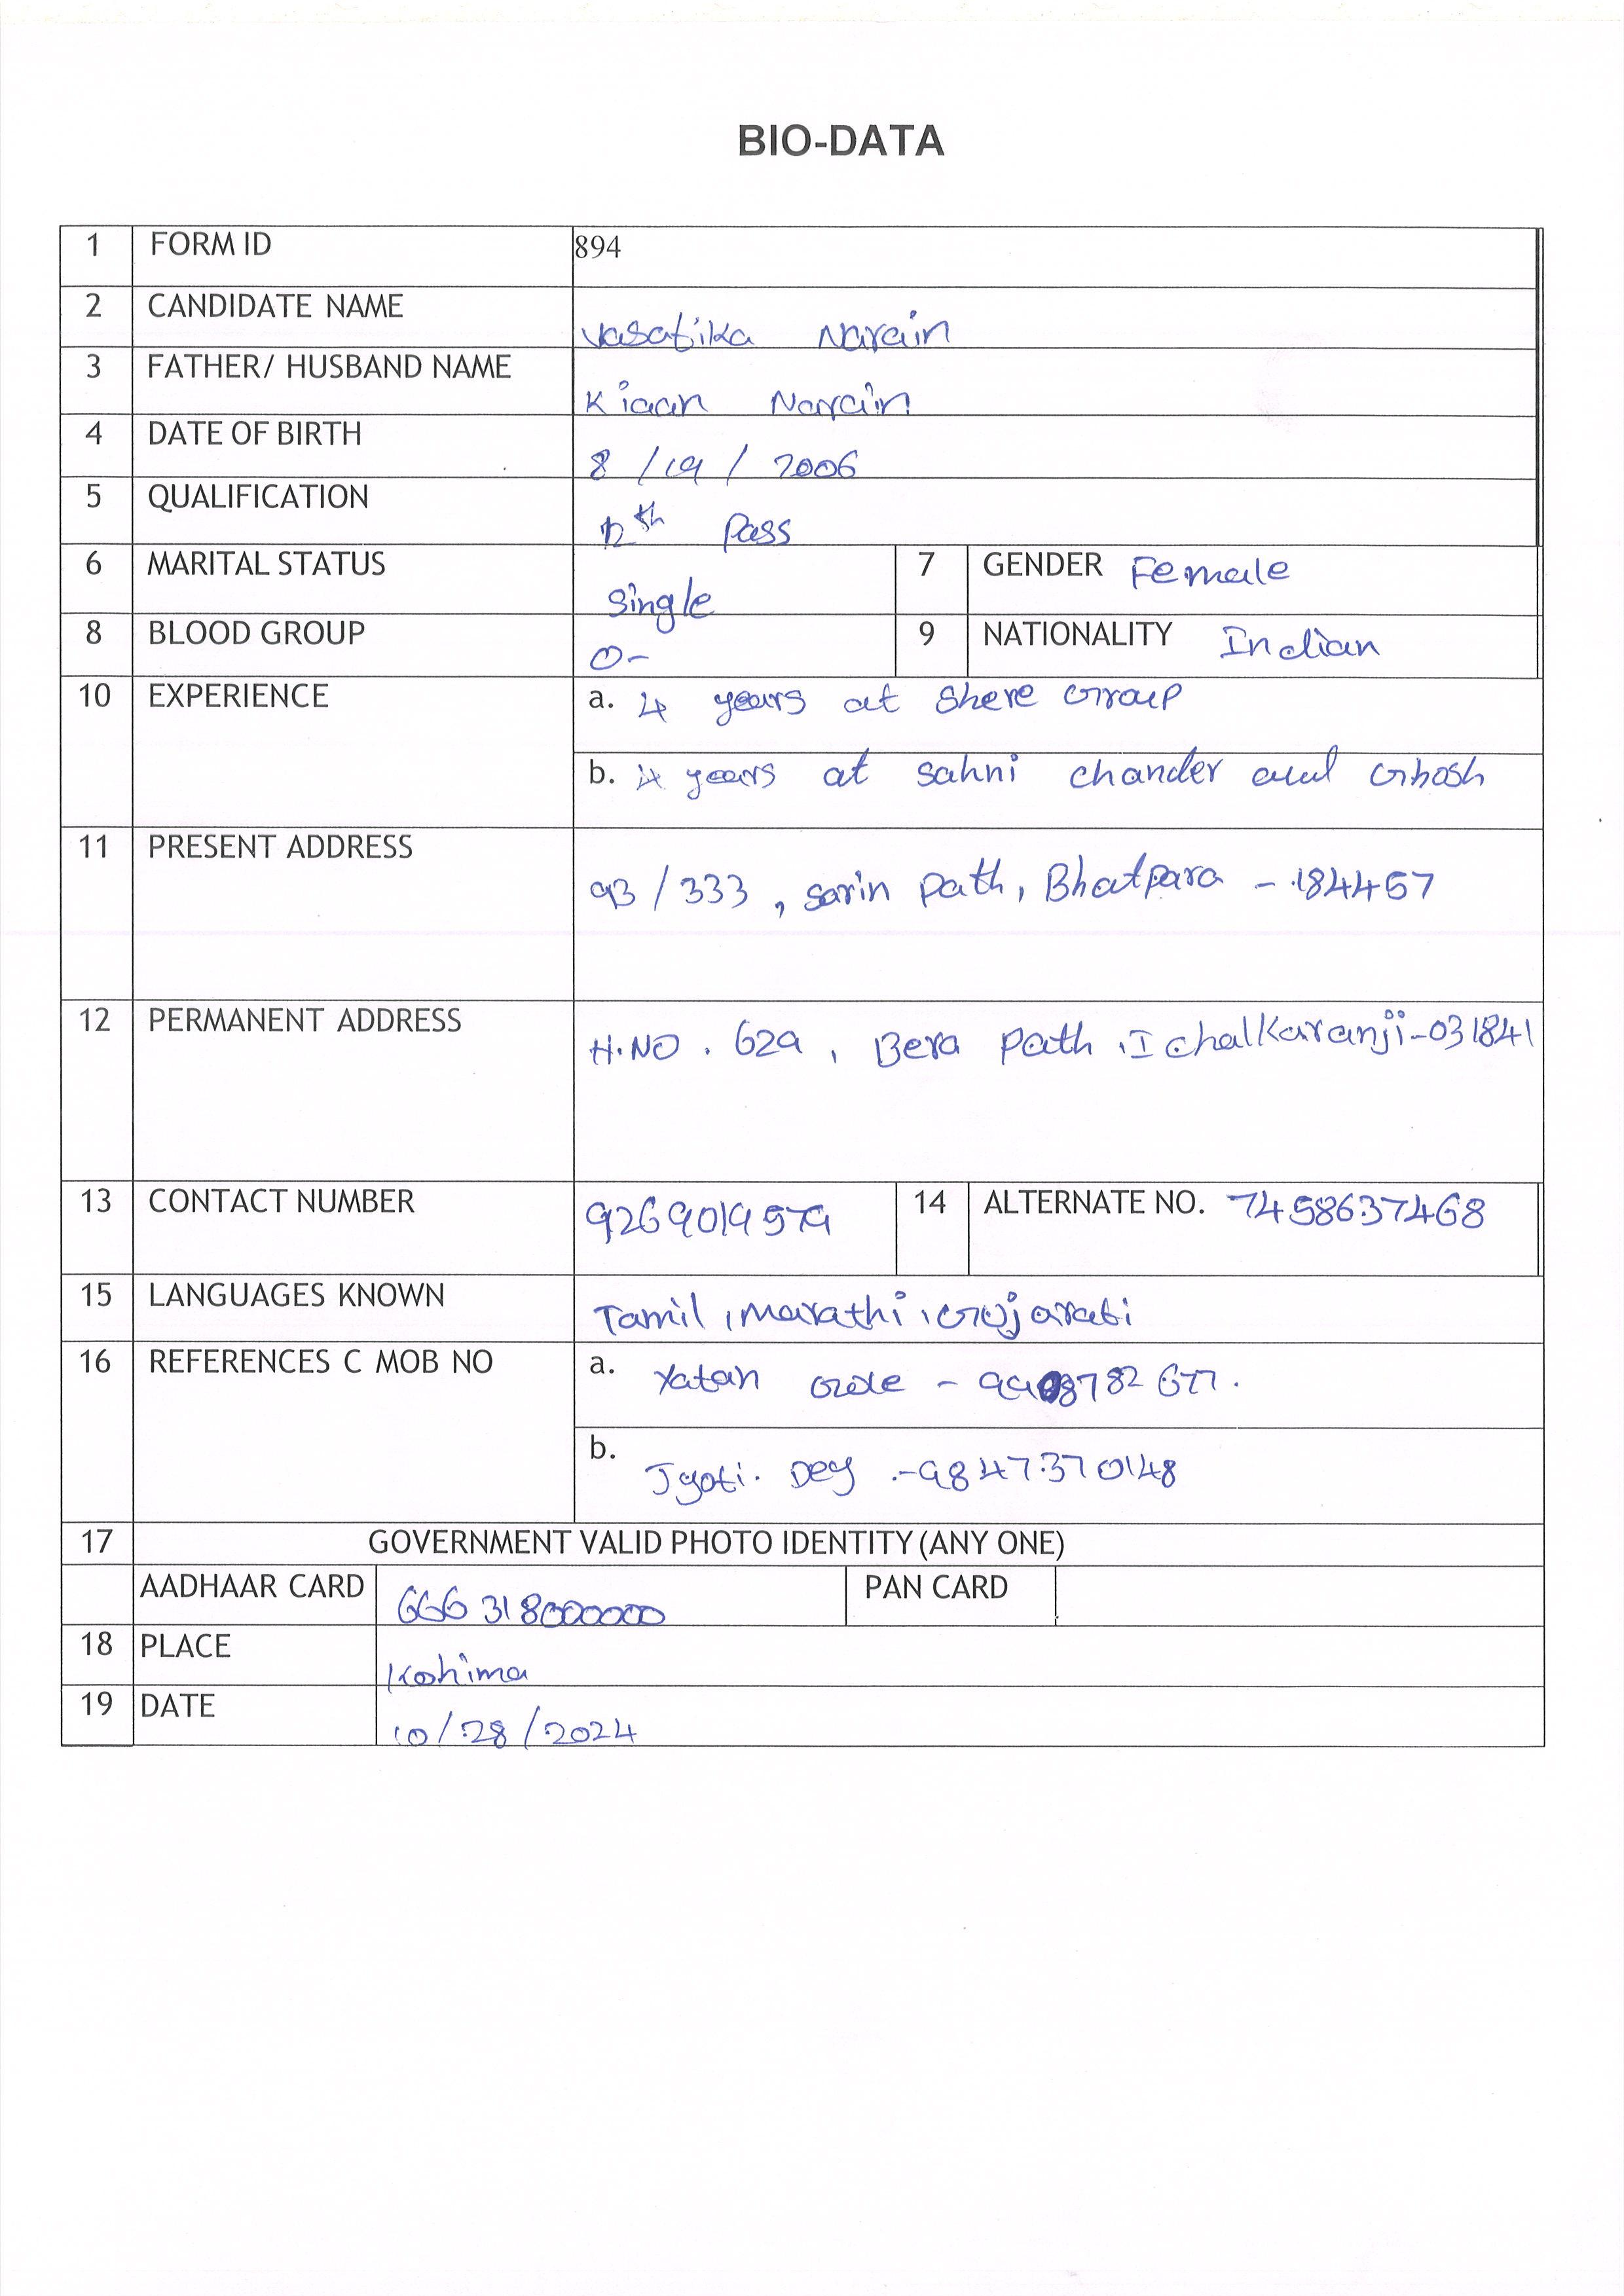 BIO-DATA
1 FORM ID 894
2 CANDIDATE NAME Vasatika Narain
3 FATHER/ HUSBAND NAME Kiaan Narain
4 DATE OF BIRTH 8 / 19 / 2006
5 QUALIFICATION 12th Pass
6 MARITAL STATUS Single 7 GENDER Female
8 BLOOD GROUP O- 9 NATIONALITY Indian
10 EXPERIENCE a. 4 years at Shere Group
b. 4 years at Sahni Chander and Ghosh
11 PRESENT ADDRESS 93 / 333 , Sarin Path, Bhatpara - 184457
12 PERMANENT ADDRESS H.NO. 629, Bera Path, Ichalkaranji-031841
13 CONTACT NUMBER 9269019579 14 ALTERNATE NO. 7458637468
15 LANGUAGES KNOWN Tamil, Marathi, Gujarati
16 REFERENCES C MOB NO a. Yatan -
b. Jyoti Dey - 9847370148
17 GOVERNMENT VALID PHOTO IDENTITY (ANY ONE)
AADHAAR CARD 666318000000 PAN CARD
18 PLACE Kohima
19 DATE 10/28/2024